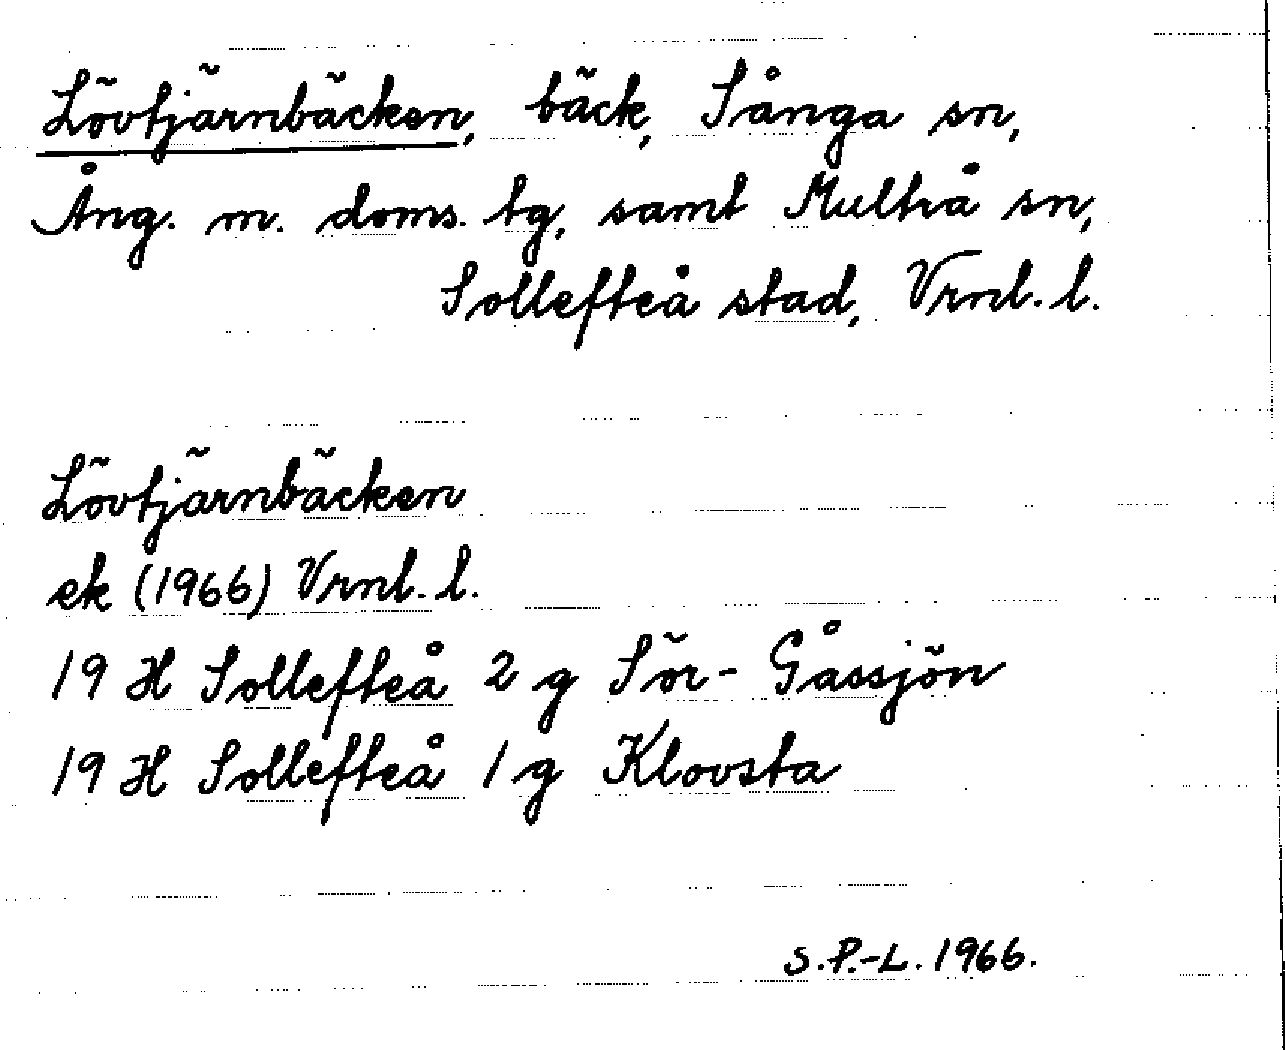 Lövtjärnbäcken, bäck, Sånga sn,
Ång. m. doms. tg, samt Multrå sn,
Sollefteå stad, Vrnl. l.
Lövtjärnbäcken
ek (1966) Vrnl. l.
19 H Sollefteå 2 g Sör-Gåssjön
19 H Sollefteå 1 g Klovsta
S.P.-L. 1966.